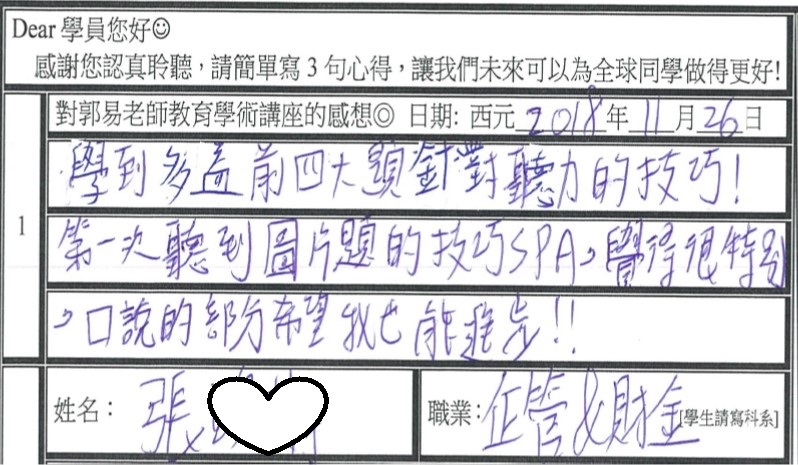 Dear 學員您好☺
感謝您認真聆聽，請簡單寫 3 句心得，讓我們未來可以為全球同學做得更好!
1
對郭易老師教育學術講座的感想◎ 日期: 西元 2018 年 11 月 26 日
學到多益前四大題針對聽力的技巧!
第一次聽到圖片題的技巧SPA，覺得很特別
，口說的部分希望我也能進步!!
姓名： 張
職業: 企管&財金 [學生請寫科系]